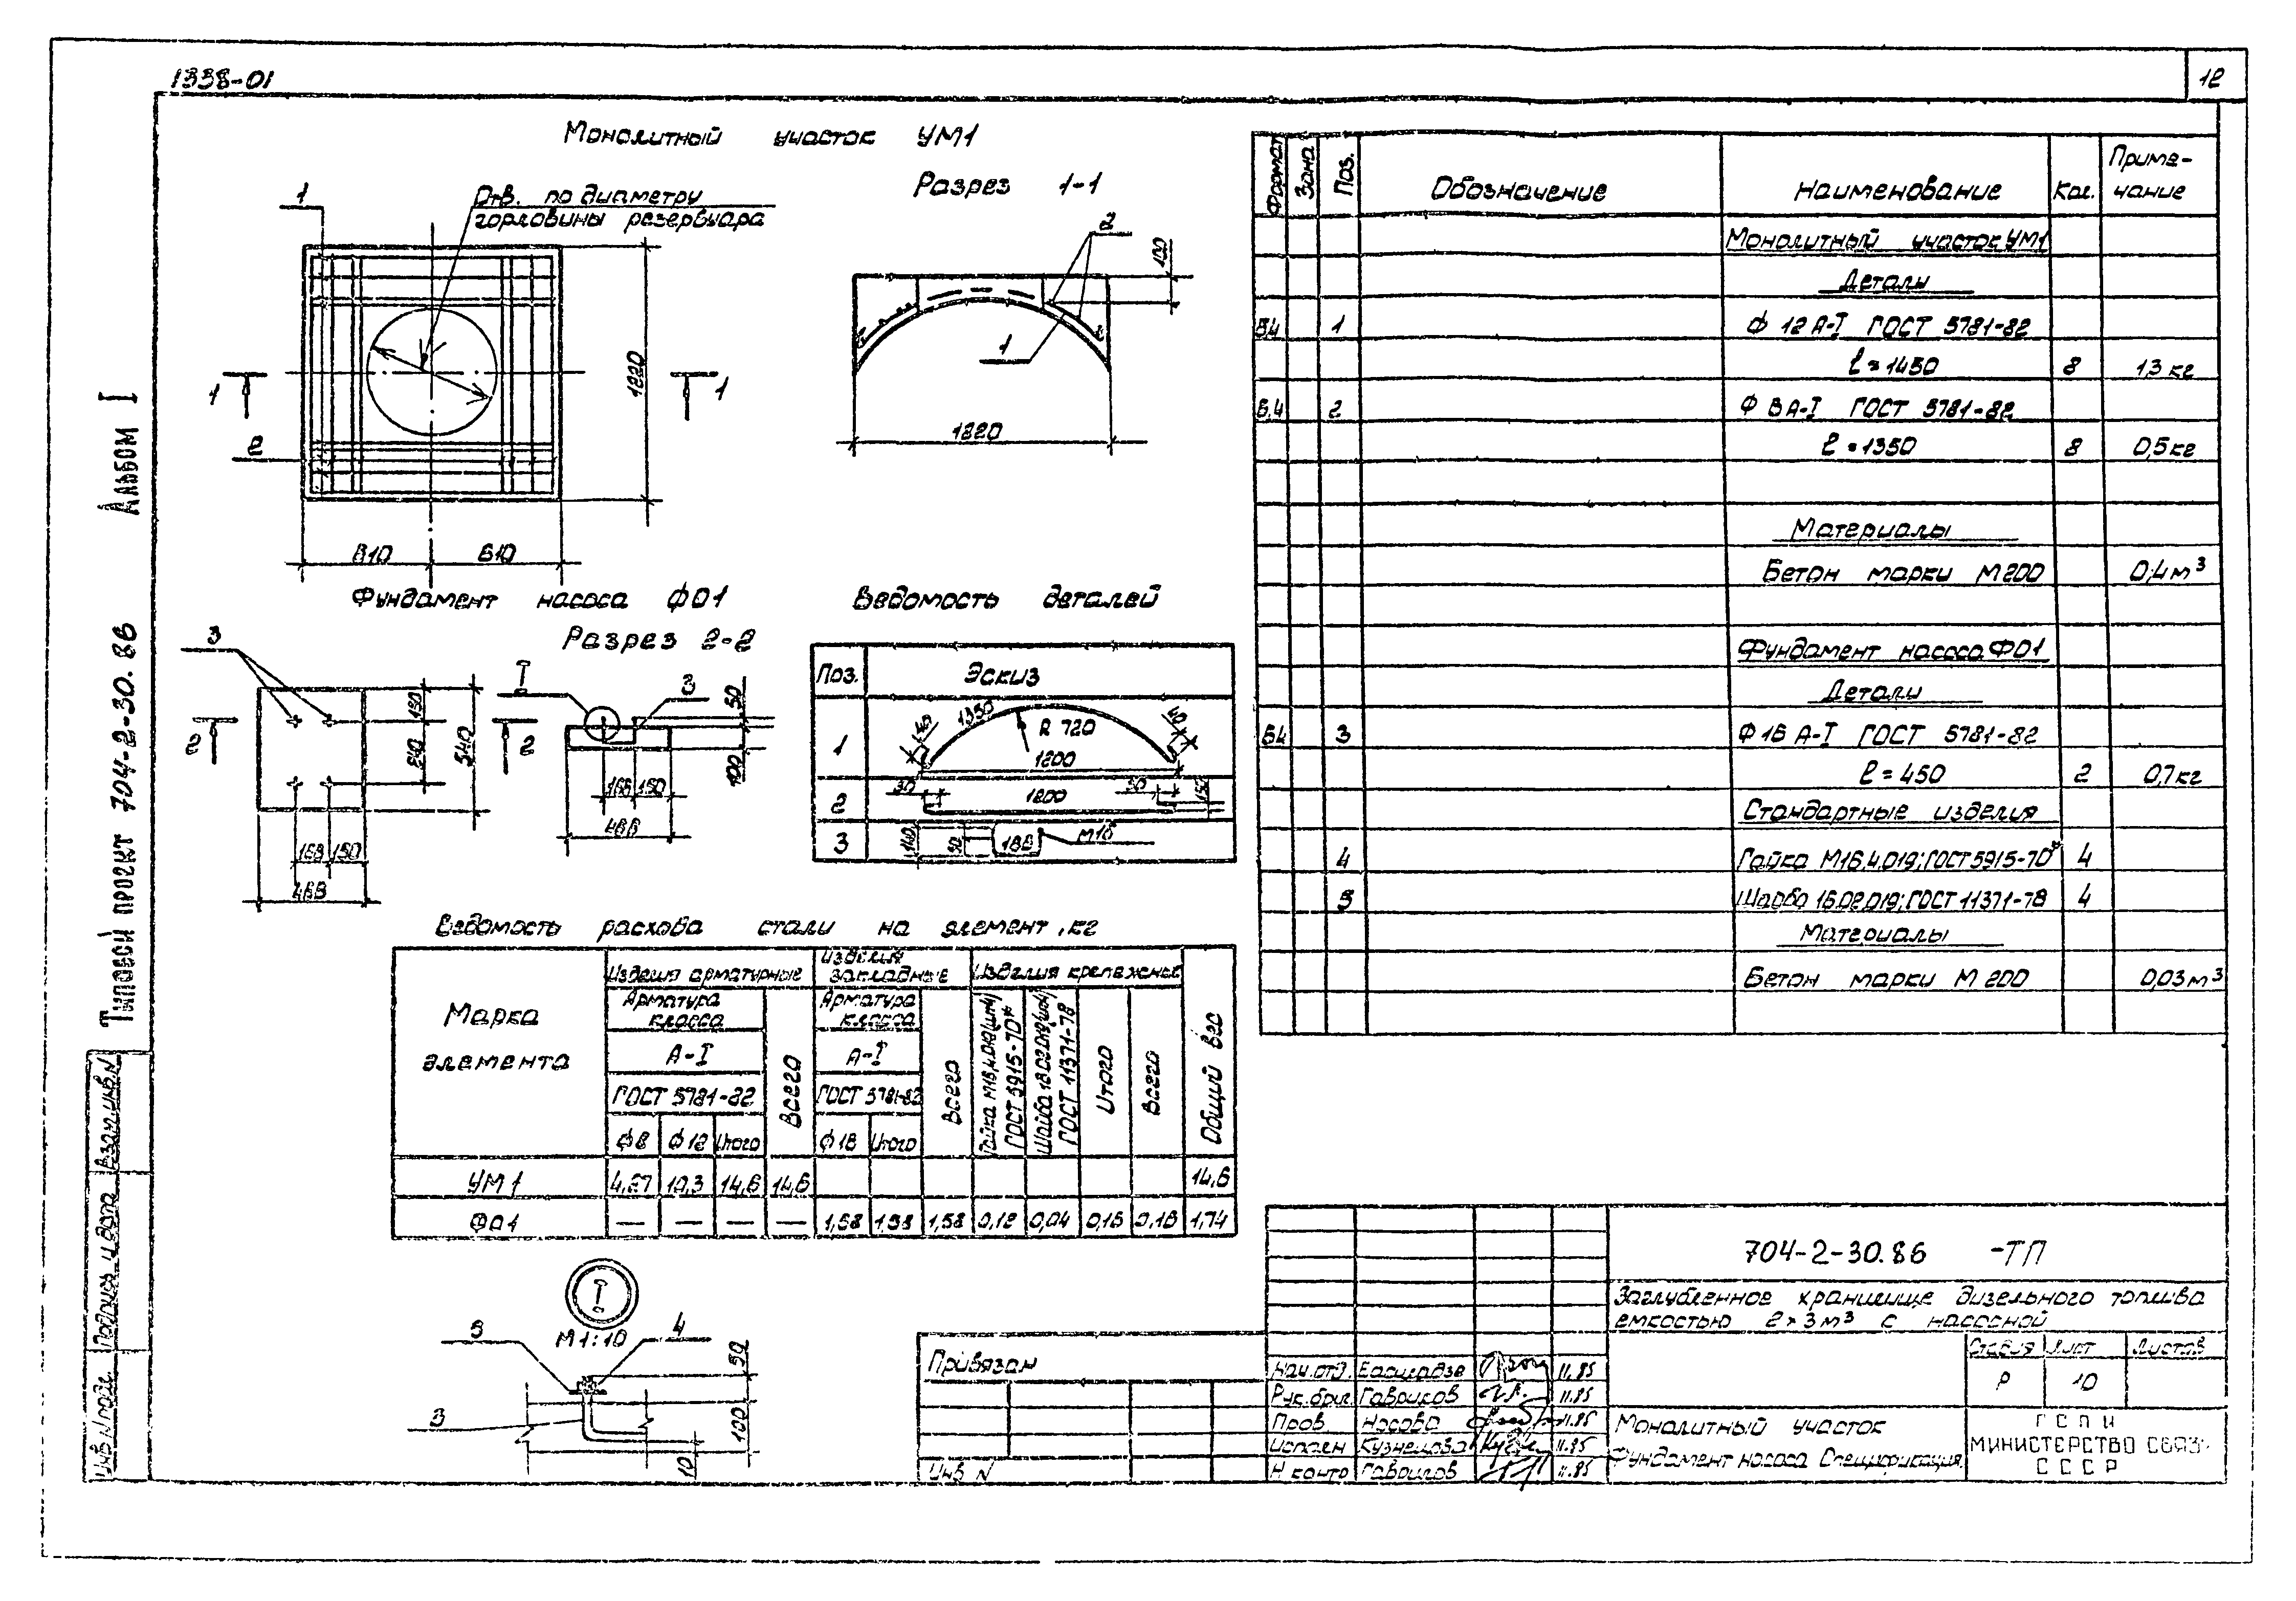 1338-01
12
Типовой проект 704-2-30.86 Альбом I
Монолитный участок УМ1
Отв. по диаметру
горловины резервуара
Разрез 1-1
1
2
1
1
2
1
1820
810
1820
100
Фундамент насоса Ф01
Разрез 2-2
3
2
2
150
240
540
168
150
468
I
3
50
100
168
150
468
Ведомость деталей
Поз.
Эскиз
1
1350
R 720
1200
2
1200
3
140
50
М16
Ведомость расхода стали на элемент, кг
Марка
элемента
Изделия арматурные
Изделия
закладные
Изделия крепежные
Общий вес
Арматура
класса
Всего
Арматура
класса
Всего
Гайка М16.4.019 (шт4)
ГОСТ 5915-70*
ГОСТ 11371-78
Итого
Всего
А-I
А-I
ГОСТ 5781-82
ГОСТ 5781-82
Ф8
Ф12
Итого
Ф16
Итого
УМ1 4,27 10,3 14,6 14,6 14,6
Ф01 — — — — 1,58 1,58 1,58 0,12 0,04 0,16 0,16 1,74
I
М1:10
5
4
3
50
100
10
Формат
Зона
Поз.
Обозначение
Наименование
Кол.
Приме-
чание
Монолитный участок УМ1
Детали
Б4 1 Ф 12 А-I ГОСТ 5781-82
ℓ=1450 8 1,3 кг
Б4 2 Ф 8 А-I ГОСТ 5781-82
ℓ=1350 8 0,5 кг
Материалы
Бетон марки М200 0,4 м³
Фундамент насоса Ф01
Детали
Б4 3 Ф 16 А-I ГОСТ 5781-82
ℓ=450 2 0,7 кг
Стандартные изделия
4 Гайка М16.4.019; ГОСТ 5915-70* 4
5 Шайба 16.02.019; ГОСТ 11371-78 4
Материалы
Бетон марки М200 0,03 м³
704-2-30.86 -ТП
Заглубленное хранилище дизельного топлива
емкостью 2×3 м³ с насосной
Стадия Лист Листов
Р 10
Нач.отд. 11.85
Рук.бриг. Гаврилов 11.85
Пров Носова 11.85
Исполн Кузнецова 11.85
Н контр Гаврилов 11.85
Монолитный участок
Фундамент насоса Спецификация
ГСПИ
МИНИСТЕРСТВО СВЯЗИ
СССР
Привязан
Инв N
Взам.инв.N
Подпись и дата
Инв N подл.